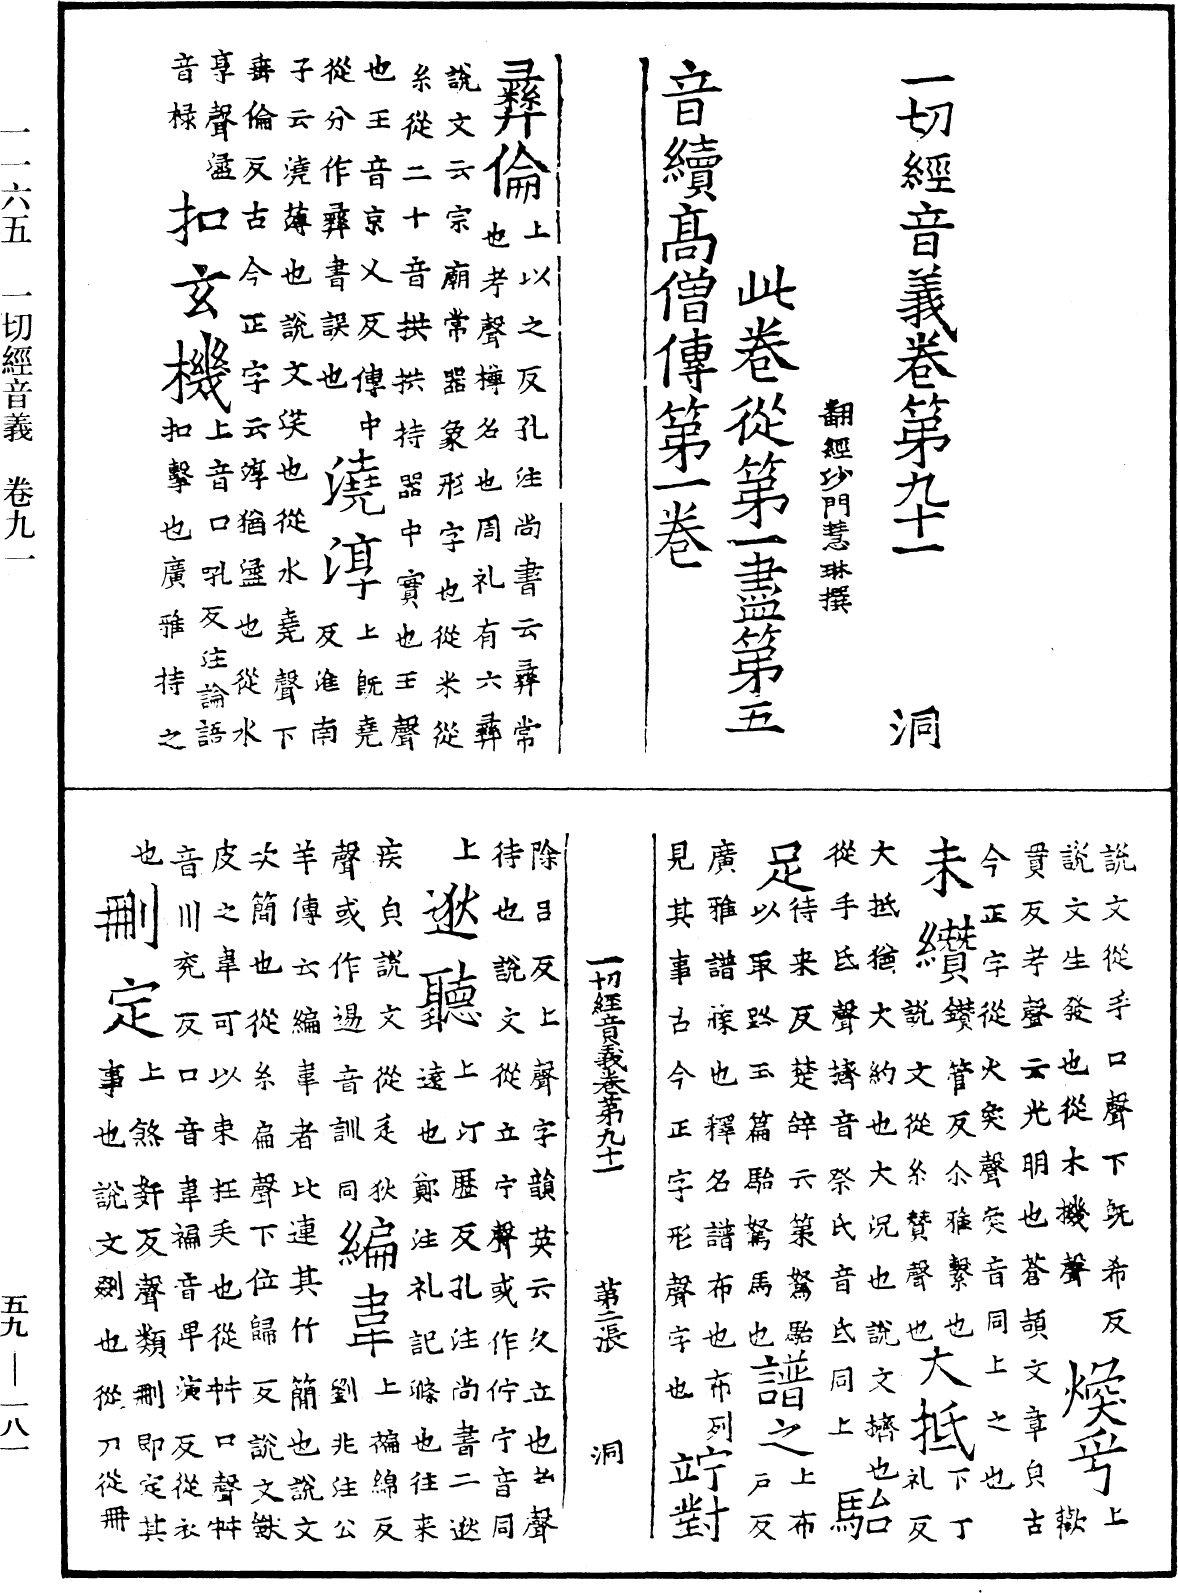 一切經音義卷第九十一　洞
翻經沙門慧琳撰
此卷從第一盡第五
音續高僧傳第一卷
彝倫上以之反孔注尚書云彝常
也考聲樽名也周礼有六彝
說文云宗廟常器象形字也從米從
糸從二十音拱拱持器中實也王聲
也王音京乂反傳中澆淳上旣堯
從分作彛書誤也　反淮南
子云澆薄也說文澆也從水堯聲下
垂倫反古今正字云淳猶盪也從水
享聲盪扣玄機上音口吼反注論語
音椂　扣擊也廣雅持之
說文從手口聲下旣希反煥乎上
說文生發也從木機聲　歡
貫反考聲云光明也蒼頡文章皃古
今正字從火奐聲奐音同上之也
未纘鑽管反尒雅繫也大抵下丁
說文從糸贊聲也　礼反
大抵猶大約也大況也說文擠也
從手氐聲擠音祭氐音氐同上駘
足待来反楚辝云策駑駘譜之上布
以取路玉篇駘駑馬也　戶反
廣雅譜牒也釋名譜布也布列
見其事古今正字形聲字也竚對
除呂反上聲字韻英云久立也去聲
待也說文從立宁聲或作佇宁音同
上逖聽上汀歷反孔注尚書二逖
遠也鄭注礼記滌也往来
疾皃說文從辵狄聲或作逷音訓同編韋上褊綿反
劉兆注公
羊傳云編韋者比連其竹簡也說文
次簡也從糸扁聲下位歸反說文獸
皮之韋可以束枉戾也從舛口聲舛
音川兖反口音韋褊音早演反從衣
也刪定上煞姧反聲類刪即定其
事也說文剟也從刀從冊
一切經音義卷第九十一　第二張　洞
一一六五　一切經音義　卷九一
五九—一八一